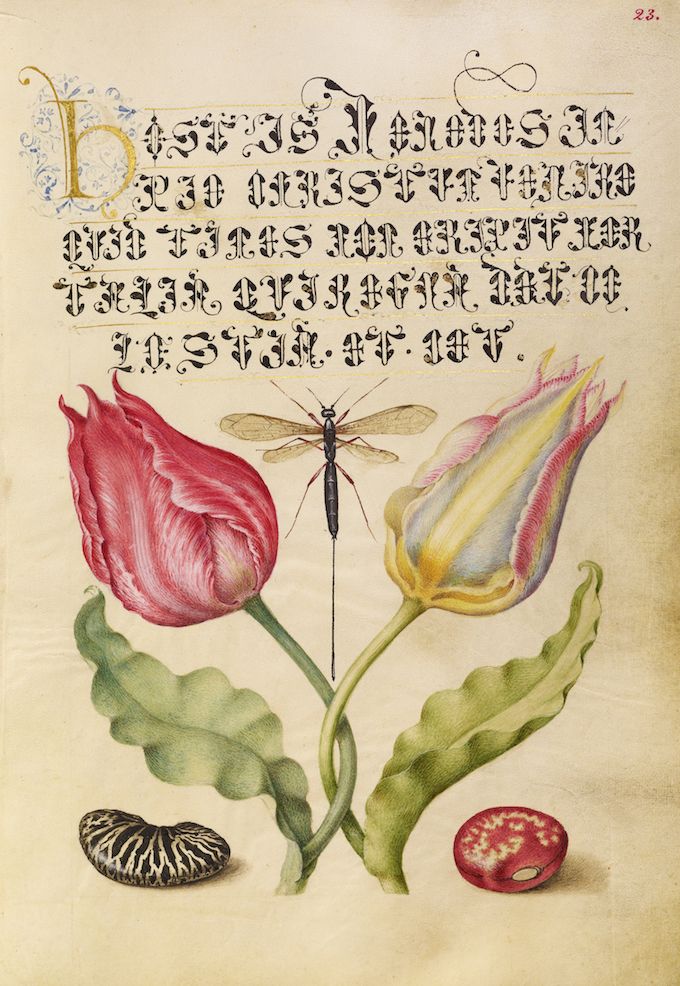 23.
HOSTIS HERODES IM
PIE CHRISTVM VENIRE
QVID TIMES NON ERIPIT MOR
TALIA QVI REGNA DAT CE
LESTIA· ET· CET.